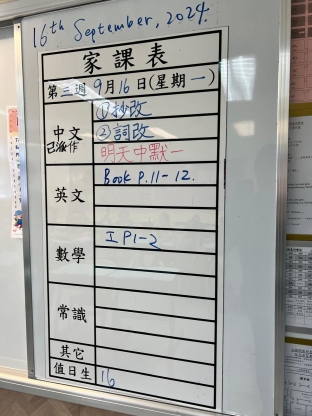 16th September, 2024.
家課表
第三週 9月16日(星期一)
中文
已派作
①抄改
②詞改
明天中默一
英文
Book P.11-12.
數學
工 P1-2
常識
其它
值日生
16